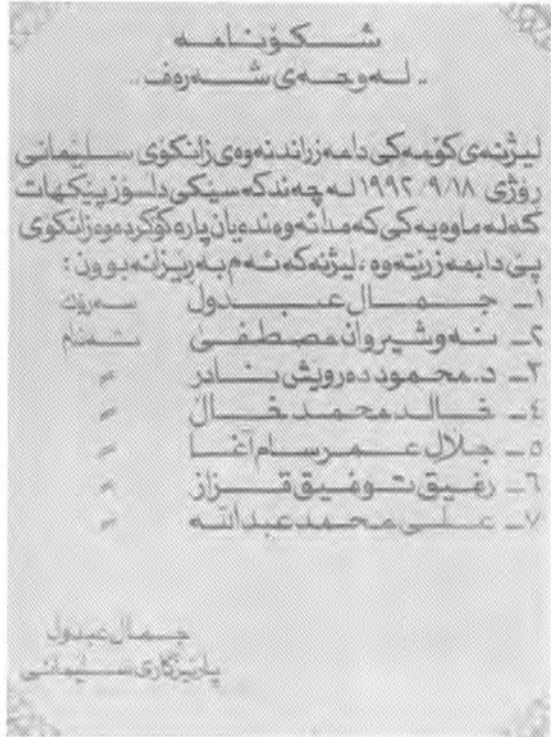 شکۆنامە
.. لەوحەی شەرەف ..
لیژنەی کۆمەکی دامەزراندنەوەی زانکۆی سلێمانی
رۆژی ١٩٩٢/٩/١٨ لە چەند کەسێکی دلسۆز پێکهات
کە لە ماوەیەکی کەمدا ئەوەندەیان پارە کۆکردەوە زانکۆی
پێ دابمەزرێتەوە ، لیژنەکە ئەم بەرێزانە بوون :
١ـ جـمـال عـبـدول سەرۆك
٢ـ نەوشیروان مصطفى ئەندام
٣ـ د. محمود دەرویش نادر 〃
٤ـ خالد محمد خال 〃
٥ـ جلال عمر سام آغا 〃
٦ـ رفیق توفیق قزاز 〃
٧ـ علي محمد عبدالله 〃
جمال عبدول
پارێزگاری سلێمانی